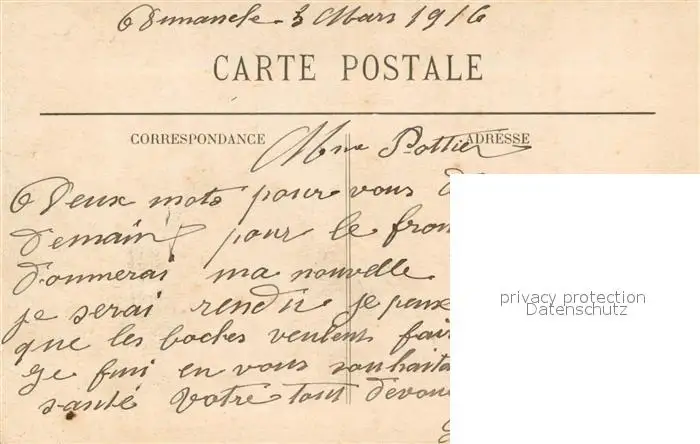 Dimanche 5 Mars 1916
CARTE POSTALE
CORRESPONDANCE
ADRESSE
Mme Pottier
Deux mots pour vous
Demain pour le fron
donnerai ma nouvelle
je serai rendu je peux
que les boches veulent fair
Je fini en vous souhaita
santé Votre tout devou
privacy protection
Datenschutz